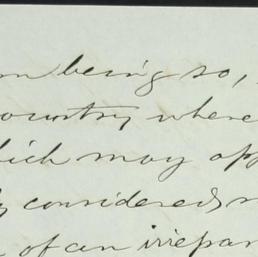 being so,
country where
which may
considered
of an irrepar